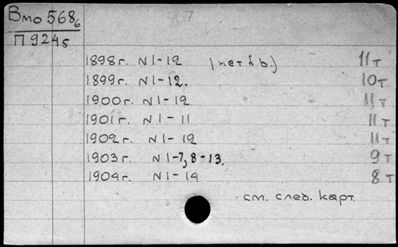 Вмо 568₆
П 9245
1898 г. N 1-12 (нет 2 b) 11 т
1899 г. N 1-12. 10 т
1900 г. N 1-12 11 т
1901 г. N 1-11 11 т
1902 г. N 1-12 11 т
1903 г. N 1-7, 8-13. 9 т
1904 г. N 1-14 8 т
см. след. карт.